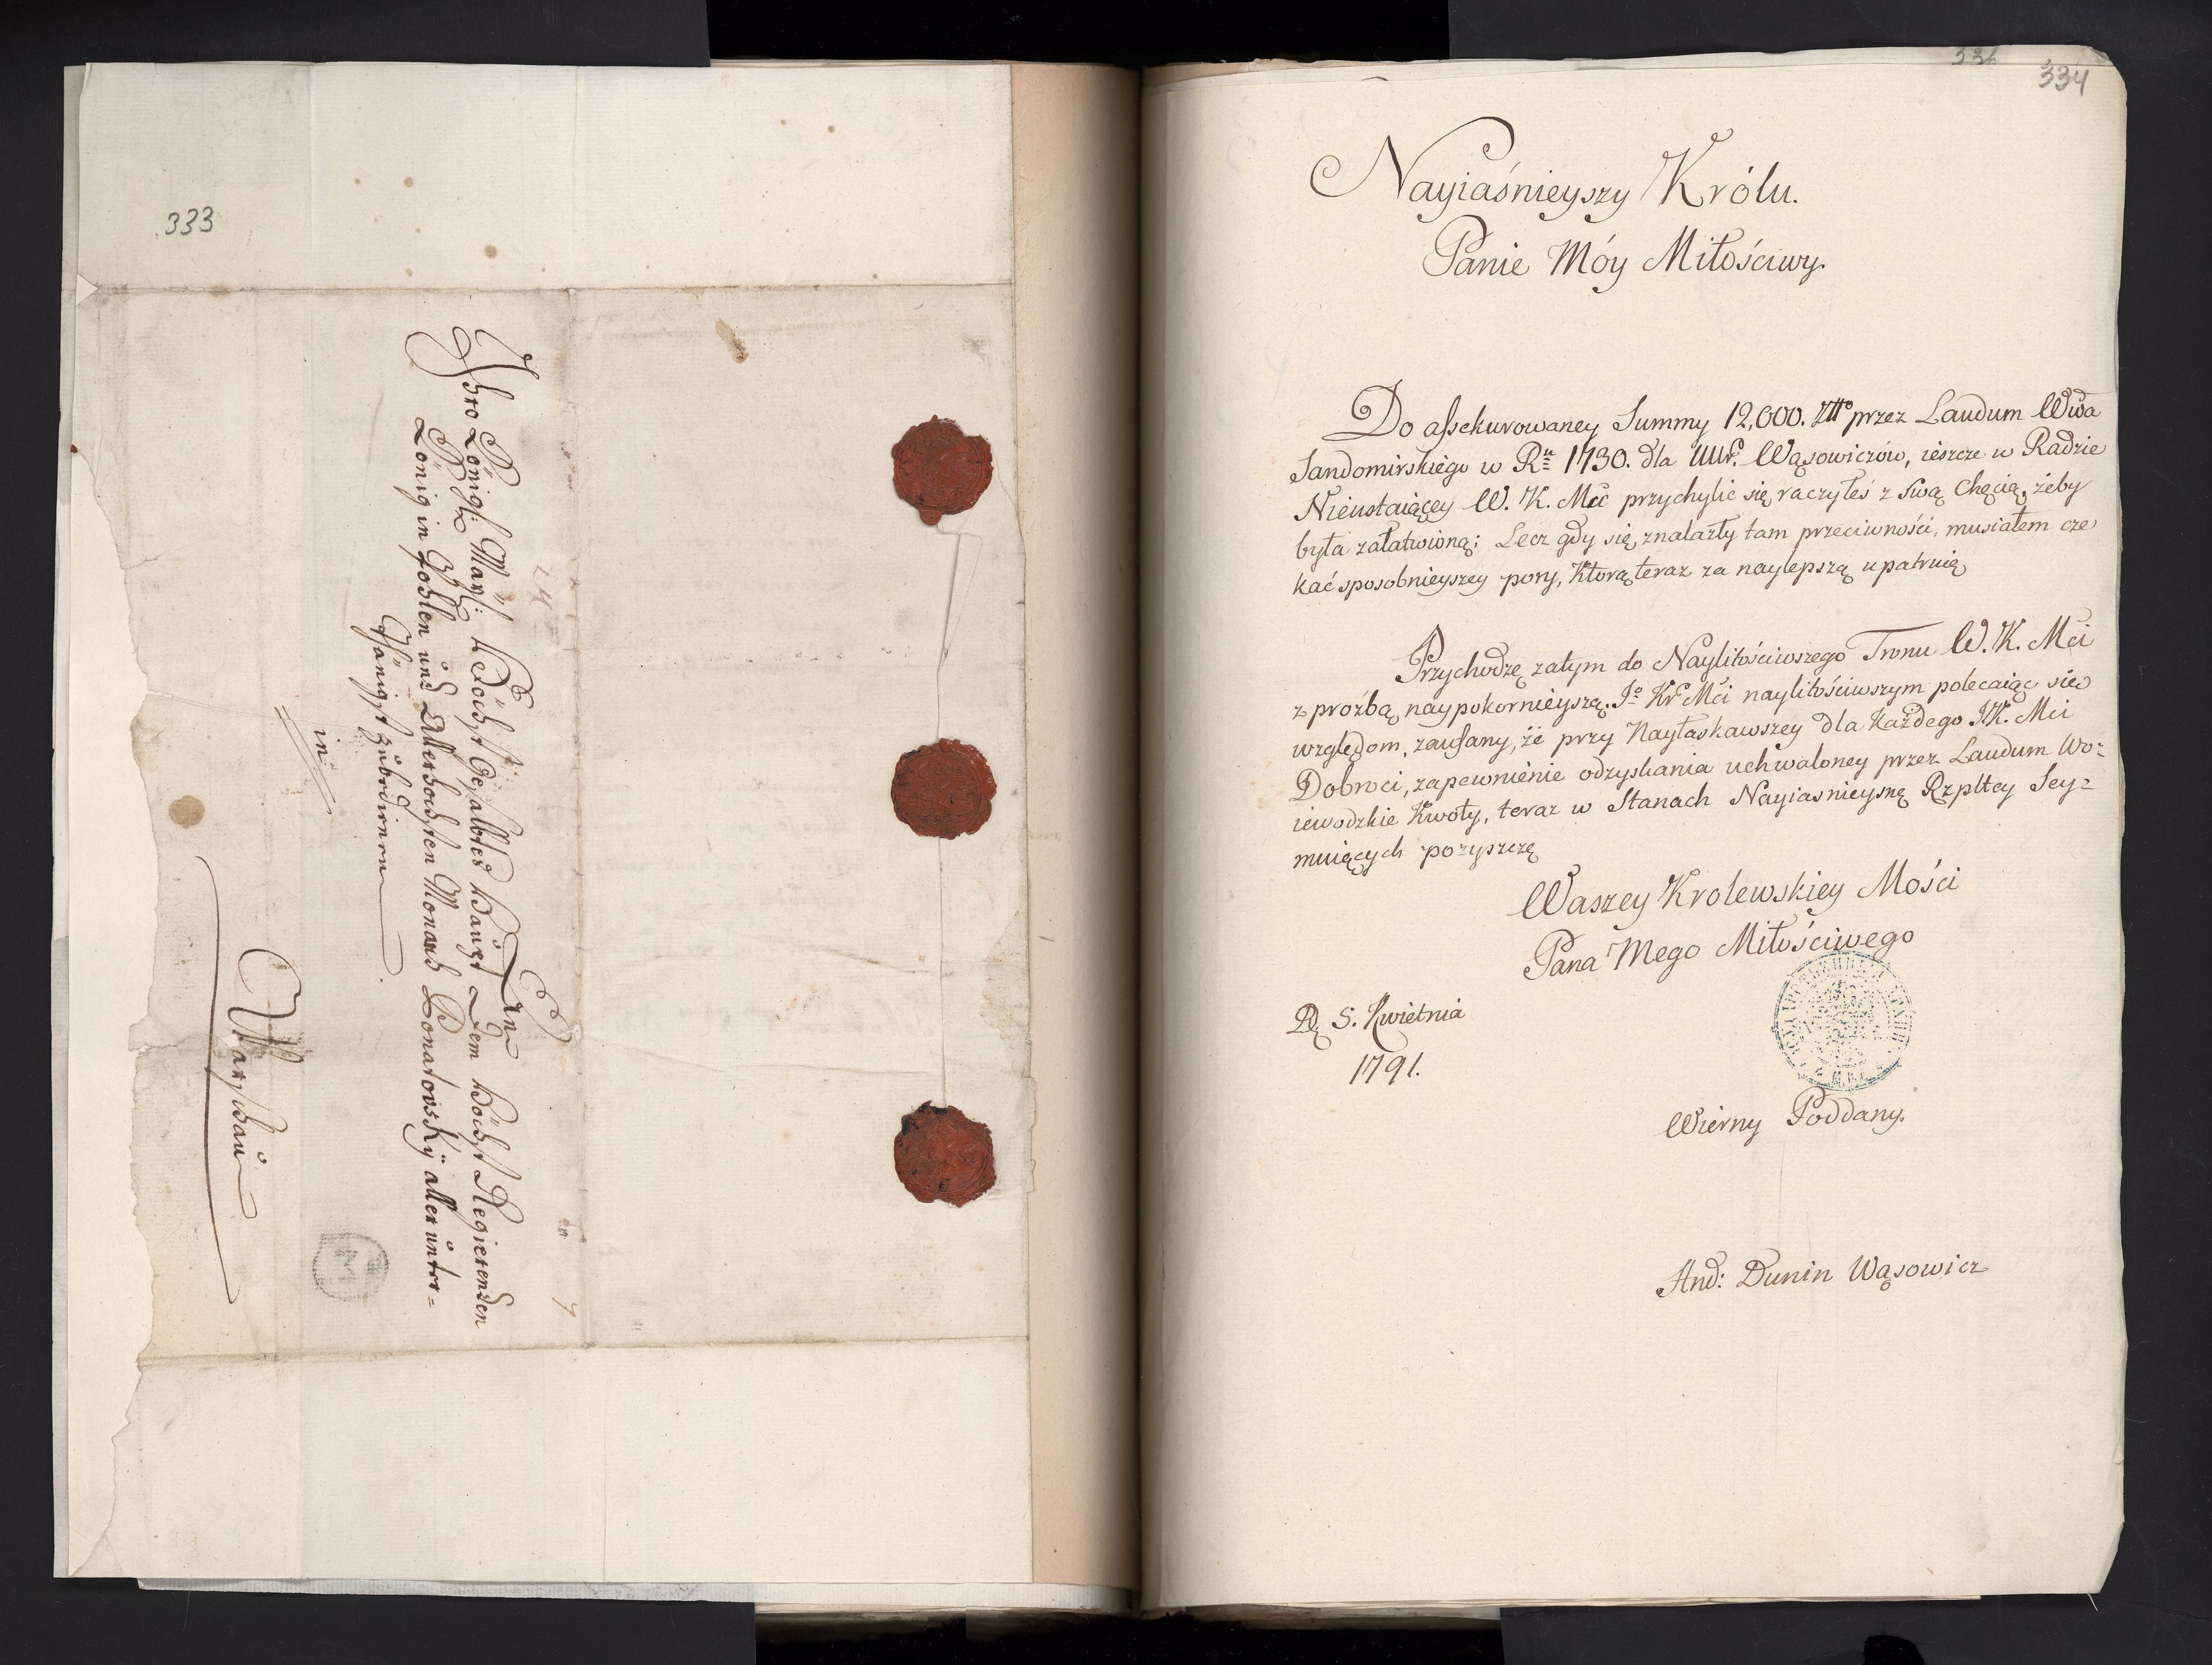 333
An
Ihro Königl: Mayl: höchst Gesalbtes haüpt Dem höchst Regierenden
König in Pohlen und Allerhöchsten Monarch Poniatovskÿ aller unter=
thänigst
in
Warschau
334
Nayiaśnieyszy Królu.
Panie Móy Miłościwy.
Do assekurowaney Summy 12,000. Złł przez Laudum Wwa
Sandomirskiego w Ru 1730. dla Wąsowiczów, ieszcze w Radzie
Nieustaiącey W. K. Mść przychylić się raczyłeś z Swą Chęcią, żeby
była załatwioną; Lecz gdy się znalazły tam przeciwności, musiałem cze
kać sposobnieyszey pory, Którą teraz za naylepszą upatruię
Przychodzę zatym do Naylitościwszego Tronu W. K. Mci
z proźbą naypokornieyszą. Jo Kr Mci naylitościwszym polecaiąc się
względom, zaufany, że przy Nayłaskawszey dla Każdego JK. Mci
Dobroci, zapewnienie odzyskania uchwaloney przez Laudum Wo=
iewodzkie Kwoty, teraz w Stanach Nayiasnieyszey Rzpltey Sey=
muiących pozyszczę
Waszey Krolewskiey Mości
Pana Mego Miłościwego
D. 5. Kwietnia
1791.
Wierny Poddany.
And: Dunin Wąsowicz